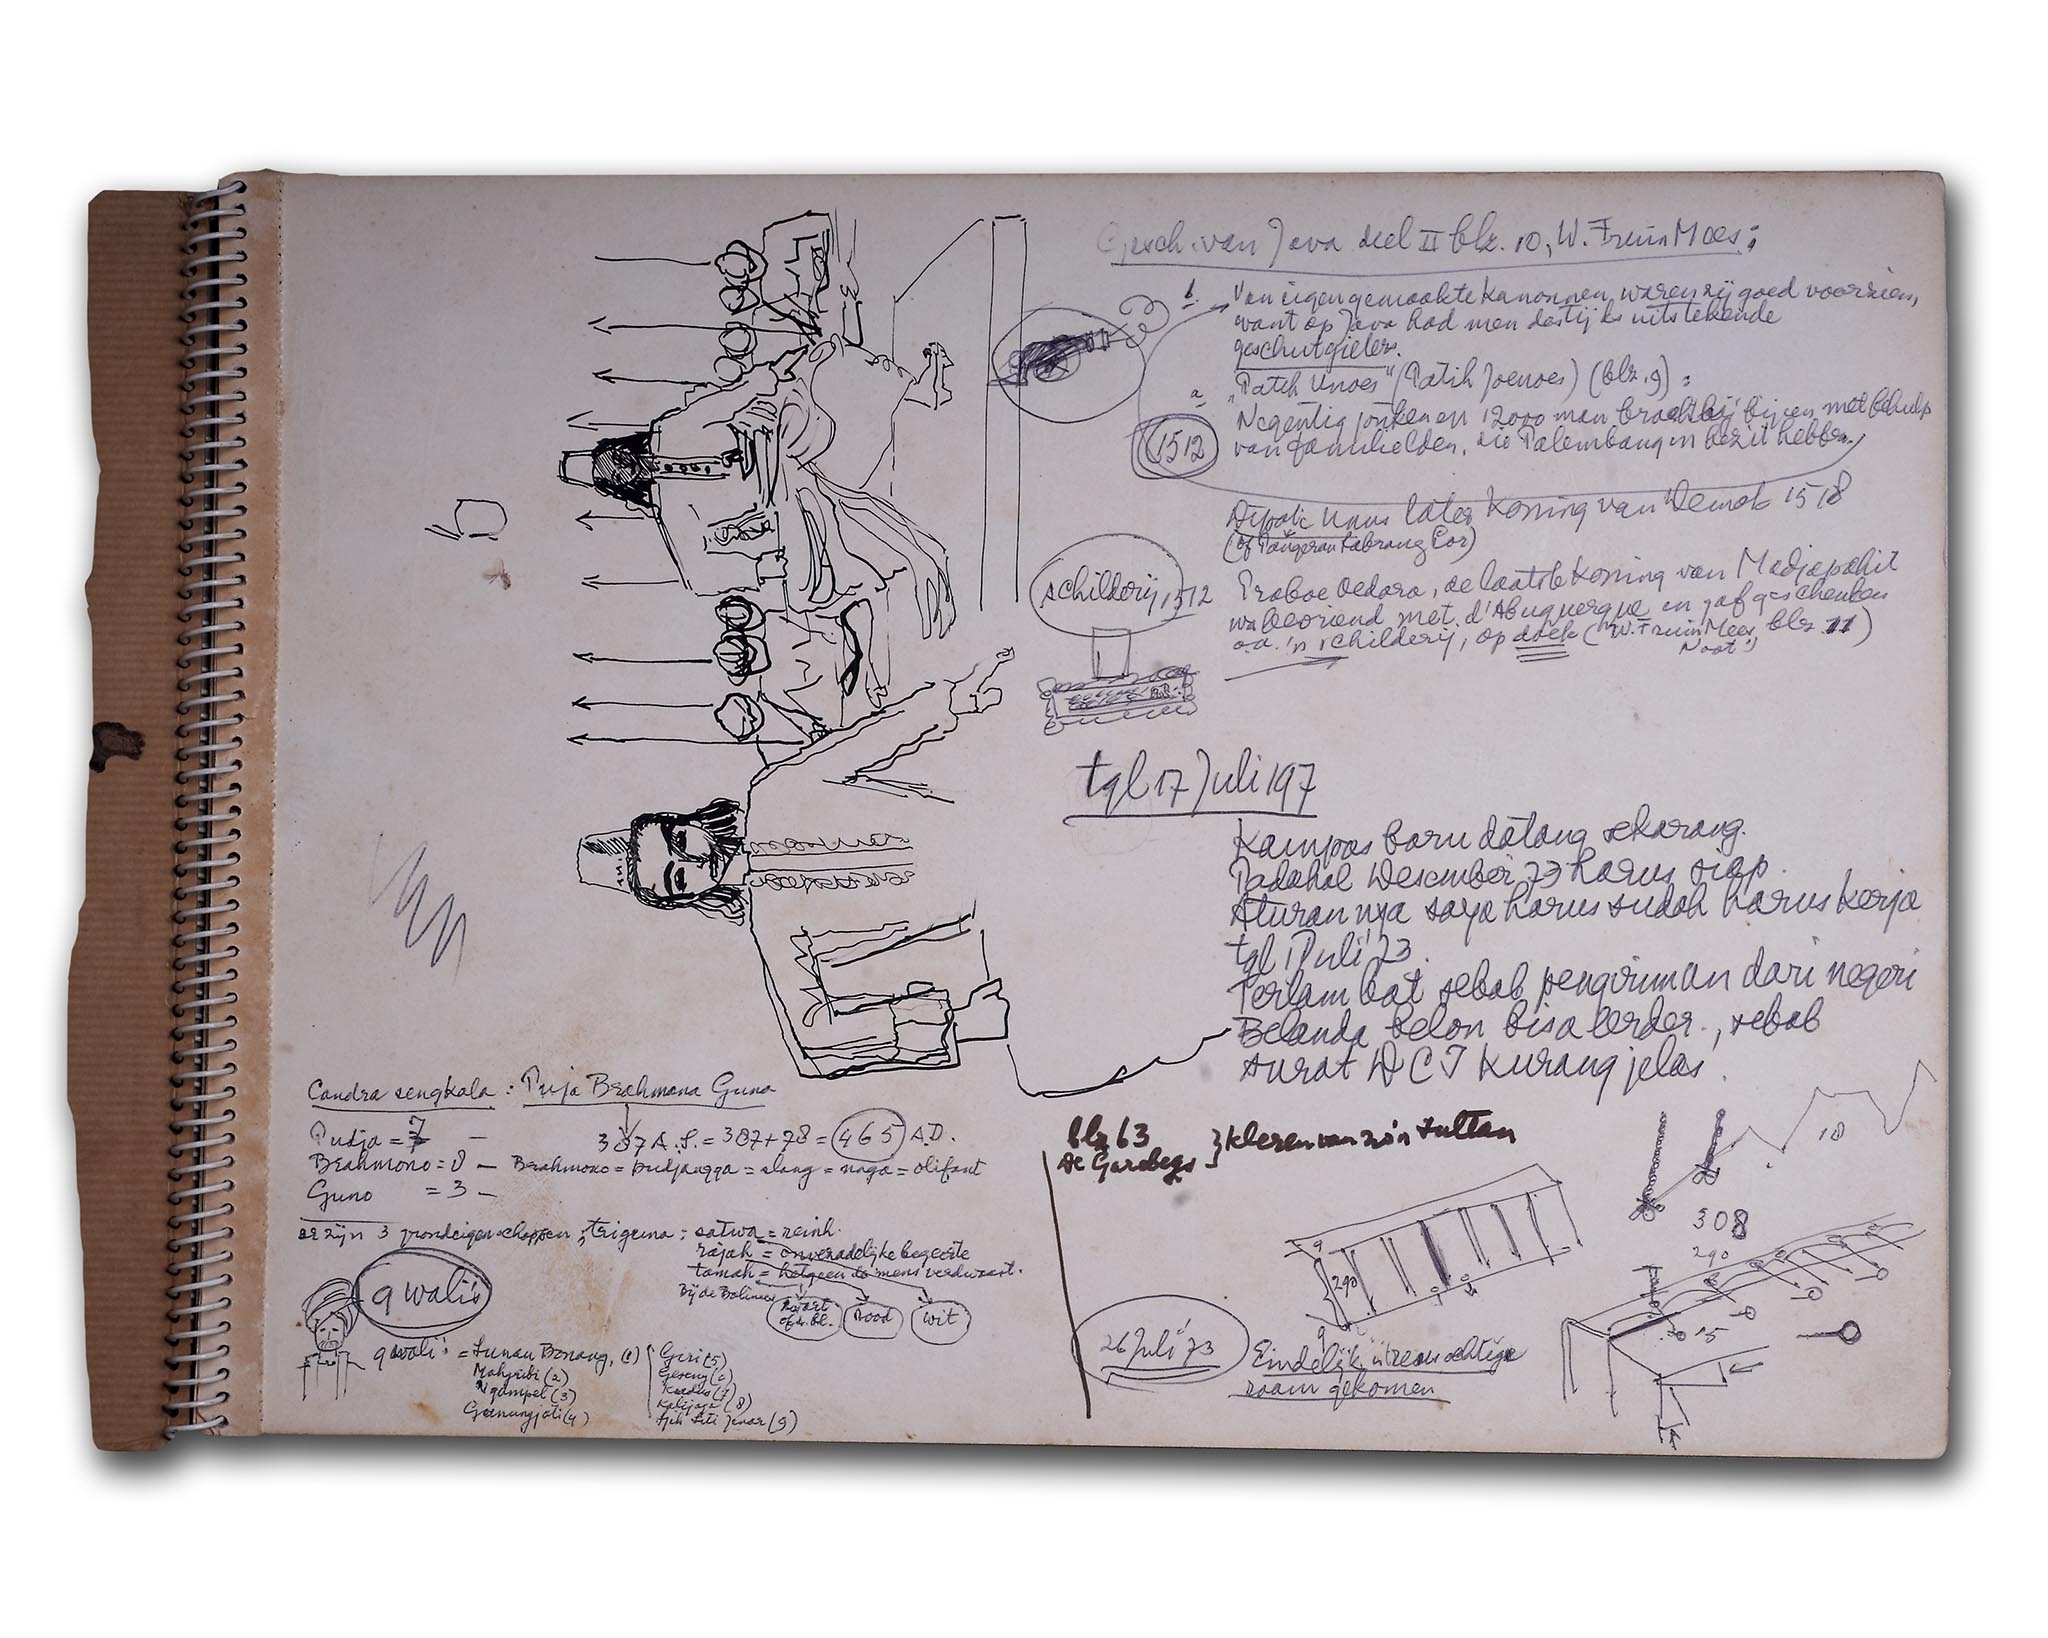 Gesch. van Java deel II blz. 10, W. Fruin Mees:
b. Van eigengemaakte kanonnen waren zij goed voorzien,
want op Java had men destijds uitstekende
geschutgieters.
a. "Patih Unoes" (Patih Joenoes) (blz. 9) :
Negentig jonken en 12000 man bracht hij bijeen met behulp
van familieleden, die Palembang in bezit hebben.
1512
Dipati Unus later Koning van Demak 1518
(of Pangeran Sabrang Lor)
schilderij 1512
Praboe Oedara, de laatste koning van Madjapahit
was bevriend met d'Abuquerque en gaf geschenken
o.a. 'n schilderij, op doek (W. Fruin Mees, blz 11)
Noot
tgl 17 Juli 197
Kampas baru datang sekarang.
Padahal Desember 73 harus siap.
Aturannya saya harus sudah harus kerja
tgl 1 Juli '73.
Terlambat sebab pengiriman dari negeri
Belanda belon bisa order, sebab
surat DCI kurang jelas.
Candra sengkala : Puja Brahmana Guna
Pudja = 7 – 387 A.S. = 387 + 78 = 465 A.D.
Brahmono = 8 – Brahmono = pudjangga = slang = naga = olifant
Guno = 3 –
er zijn 3 grondeigenschappen; triguna : satwa = rein
rajah = onveradelijke begeerte
tamah = hetgeen de mens verdwaast.
Bij de Balinees zwart of d. bl. Rood wit
9 wali's
9 wali's = Sunan Bonang, (1) Giri (5)
Mahgribi (2) Geseng (6)
Ngampel (3) Kudus (7)
Goenungjati (4) Kalijaga (8)
Sjeh Siti Jenar (9)
blz 63
De Garebegs } kleren van zo'n Sultan
10
308
290
290
15
26 Juli '73
Eindelijk is reusachtige
raam gekomen